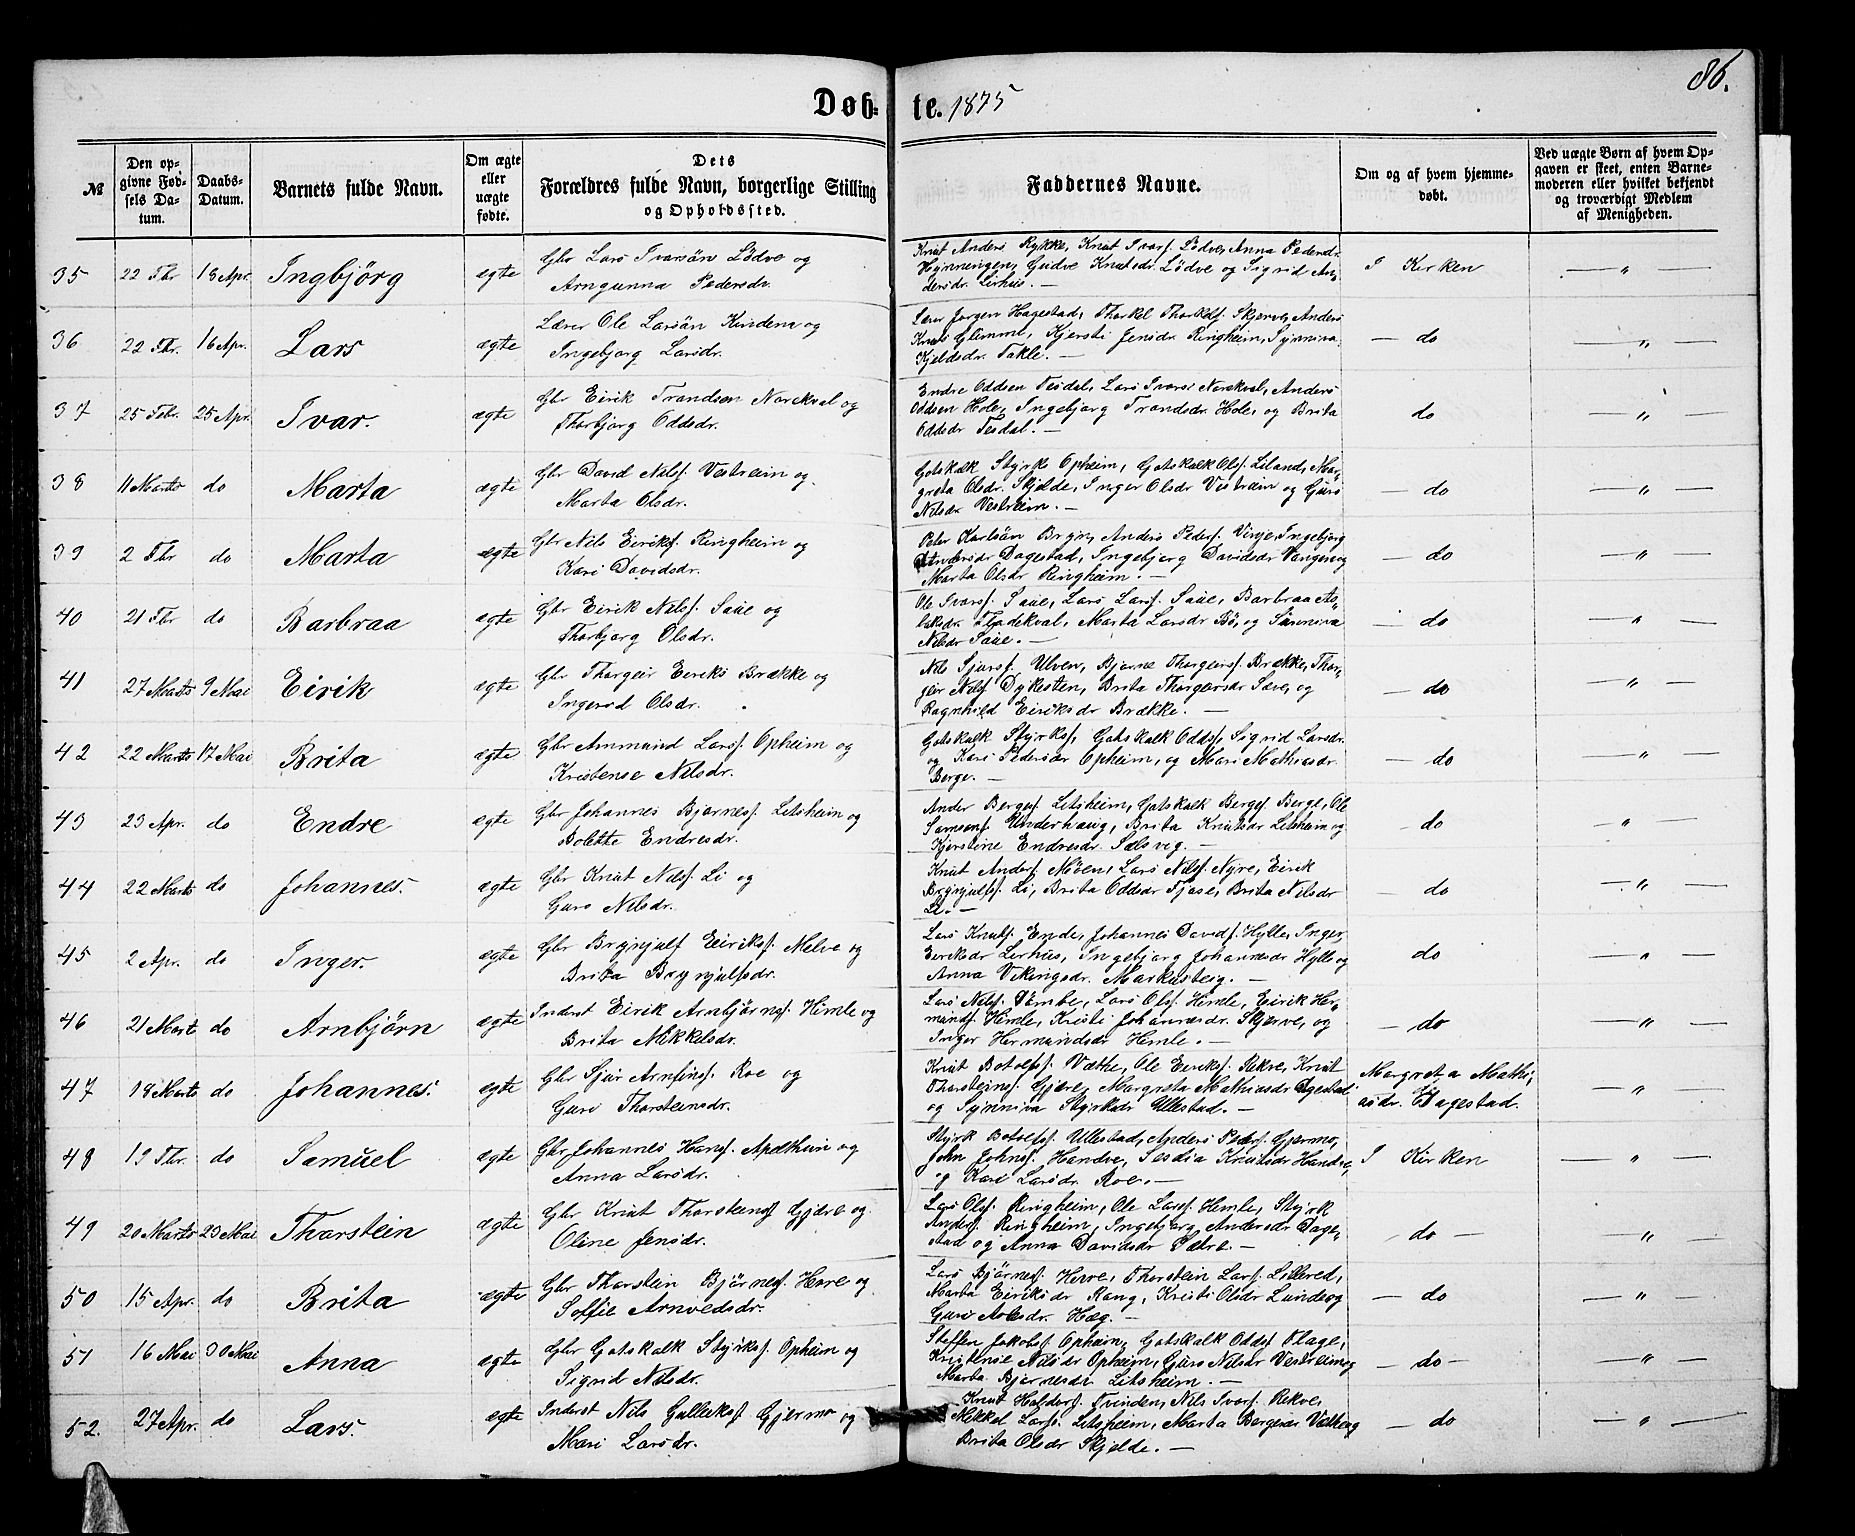 86.
Døb- te. 1875
№
Den op-
givne Fød-
sels Da-
tum.
Daabs-
Datum.
Barnets fulde Navn.
Om ægte
eller
uægte
fødte.
Dets
Forældres fulde Navn, borgerlige Stilling
og Opholdssted.
Faddernes Navne.
Om og af hvem hjemme-
døbt.
Ved uægte Børn af hvem Op-
gaven er skeet, enten Barne-
moderen eller hvilket bekjendt
og troværdigt Medlem
af Menigheden.
35 22 Fbr 18 Apr. Ingbjörg ægte
Gbr Lars Ivarsön Lödve og
Arngunna Pedersdr.
Knut Anders Rykke, Knut Ivarsf. Lödve, Anna Pedersdr.
Hyrningen, Gudve Knutsdr. Lödve og Sigrid An-
dersdr. Lirhus. —
I Kirken — " —
36 22 Fbr. 16 Apr. Lars ægte
Lærer Ole Larsön Kindem og
Ingebjorg Larsdr.
Lærer Jorgen Hagestad, Thorkel Thorkelsf. Skjerve, Anders
Knuts Glimme, Kjersti Jensdr. Ringheim, Synniva
Kjeldsdr. Takle. —
— do — " —
37 25 Febr. 25 Apr. Ivar. ægte
Gbr Eirik Trondsen Norekval og
Thorbjorg Oddsdr.
Endre Oddsen Tesdal, Lars Ivarsf Norekval, Anders
Oddsen Hole, Ingebjorg Trondsdr. Hole, og Brita
Oddsdr Tesdal. —
do — " —
38 11 Marts do Marta ægte
Gbr David Nilsf. Vestreim og
Marta Olsdr.
Gotskalk Styrks Opheim, Gotskalk Olsf. Liland, Mar-
greta Olsdr. Skjelde, Inger Olsdr Vestreim og Guro
Nilsdr. Vestreim. —
— do — " —
39 2 Fbr do Marta ægte
Gbr Nils Eiriksf. Ringheim og
Kari Davidsdr.
Peter Karlsön Bryn, Anders Pedersf. Vinje, Ingebjorg
Andersdr Dagestad, Ingebjorg Davidsdr Vangen og
Marta Olsdr Ringheim. —
— do — " —
40 21 Fbr do Barbraa ægte
Gbr Eirik Nilsf. Saue og
Thorbjorg Olsdr.
Ole Ivarsf. Saue, Lars Larsf. Saue, Barbraa As-
laksdr. Flatekval, Marta Larsdr Bö, og Synniva
Nilsdr Saue. —
— do — " —
41 27 Marts 9 Mai Eirik ægte
Gbr Thorgeir Eiriks Brække og
Ingerid Olsdr.
Nils Sjursf. Ulven, Bjorne Thorgeirsf. Brække, Thor-
geir Nilsf Dykesten, Brita Thorgeirsdr Saue, og
Ragnhild Eiriksdr Brække. —
— do — " —
42 22 Marts 17 Mai Brita ægte
Gbr Ammund Larsf. Opheim og
Kristense Nilsdr.
Gotskalk Styrksf, Gotskalk Oddsf, Sigrid Larsdr.
og Kari Pedersdr Opheim, og Mari Mathiasdr.
Berge. —
— do — " —
43 23 Apr. do Endre ægte
Gbr Johannes Bjornesf. Litsheim og
Bolette Endresdr.
Ander Bergesf. Litsheim, Gotskalk Bergesf. Berge, Ole
Samsonsf Underhaug, Brita Knutsdr Litsheim og
Kjerstine Endresdr. Sælsveg. —
— do — " —
44 22 Marts do Johannes. ægte
Gbr Knut Nilsf. Li og
Guro Nilsdr.
Knut Andersf. Möen, Lars Nilsf. Nyre, Eirik
Brynjulfsf. Li, Brita Oddsdr Fjose, Brita Nilsdr
Li. —
— do — " —
45 2 Apr. do Inger. ægte
Gbr Brynjulf Eiriksf. Melve og
Brita Brynjulfsdr.
Lars Knutsf. Ende, Johannes Davidsf. Hylle, Inger
Eiriksdr Lirhus, Ingebjorg Johannesdr Hylle og
Anna Vikingsdr. Markusteig. —
do — " —
46 21 Mart do Arnbjörn ægte
Inderst Eirik Arnbjörnsf. Himle og
Brita Mikkelsdr.
Lars Nilsf. Dömbe, Lars Olsf. Himle, Eirik Her-
mundsf. Himle, Kristi Johannesdr. Skjerve, og
Inger Hermundsdr Himle. —
— do — " —
47 18 Marts do Johannes. ægte
Gbr Sjur Arnfinsf. Roe og
Guri Thorsteinsdr.
Knut Botolfsf. Væthe, Ole Eiriksf. Rekve, Knut
Thorsteinsf. Gjære, Margreta Mathiasdr Dagestad
og Synniva Styrksdr Ullestad. —
Margreta Mathi-
asdr. Dagestad. — "
48 19 Fbr. do Samuel ægte
Gbr Johannes Hansf. Apelthun og
Anna Larsdr.
Styrk Botolfsf. Ullestad, Anders Pedersf. Gjermo,
John Johnsf. Handve, Sesilia Knutsdr Handve,
og Kari Larsdr. Roe. —
I Kirken — " —
49 20 Marts 23 Mai Thorstein ægte
Gbr Knut Thorsteinsf Gjære og
Oline Jensdr.
Lars Olsf. Ringheim, Ole Larsf Himle, Styrk
Andersf. Ringheim, Ingebjorg Andersdr Dage-
stad og Anna Davidsdr Sætre. —
— do — "
50 15 Apr. do Brita ægte
Gbr Thorstein Björnesf. Herre og
Soffie Arnvedsdr.
Lars Björnesf. Herve, Thorstein Larsf. Lillered,
Marta Eiriksdr Rong, Kristi Olsdr Lunde og
Guri Aolesdr. Hæg. —
— do — " —
51 16 Mai 30 Mai Anna ægte
Gbr Gotskalk Styrksf. Opheim og
Sigrid Nilsdr.
Steffen Jakobsf Opheim, Gotskalk Oddsf Flage,
Kristense Nilsdr Opheim, Guro Nilsdr Vestreim og
Marta Bjornesdr Litsheim. —
— do — — " —
52. 27 Apr. do Lars. ægte
Inderst Nils Gulleiksf. Gjermo og
Mari Larsdr.
Knut Haldorsf. Tvinden, Nils Ivarsf. Rekve,
Mikkel Larsf. Litsheim, Marta Bergesdr Væthe og
Brita Olsdr Skjelde. —
— do — " —